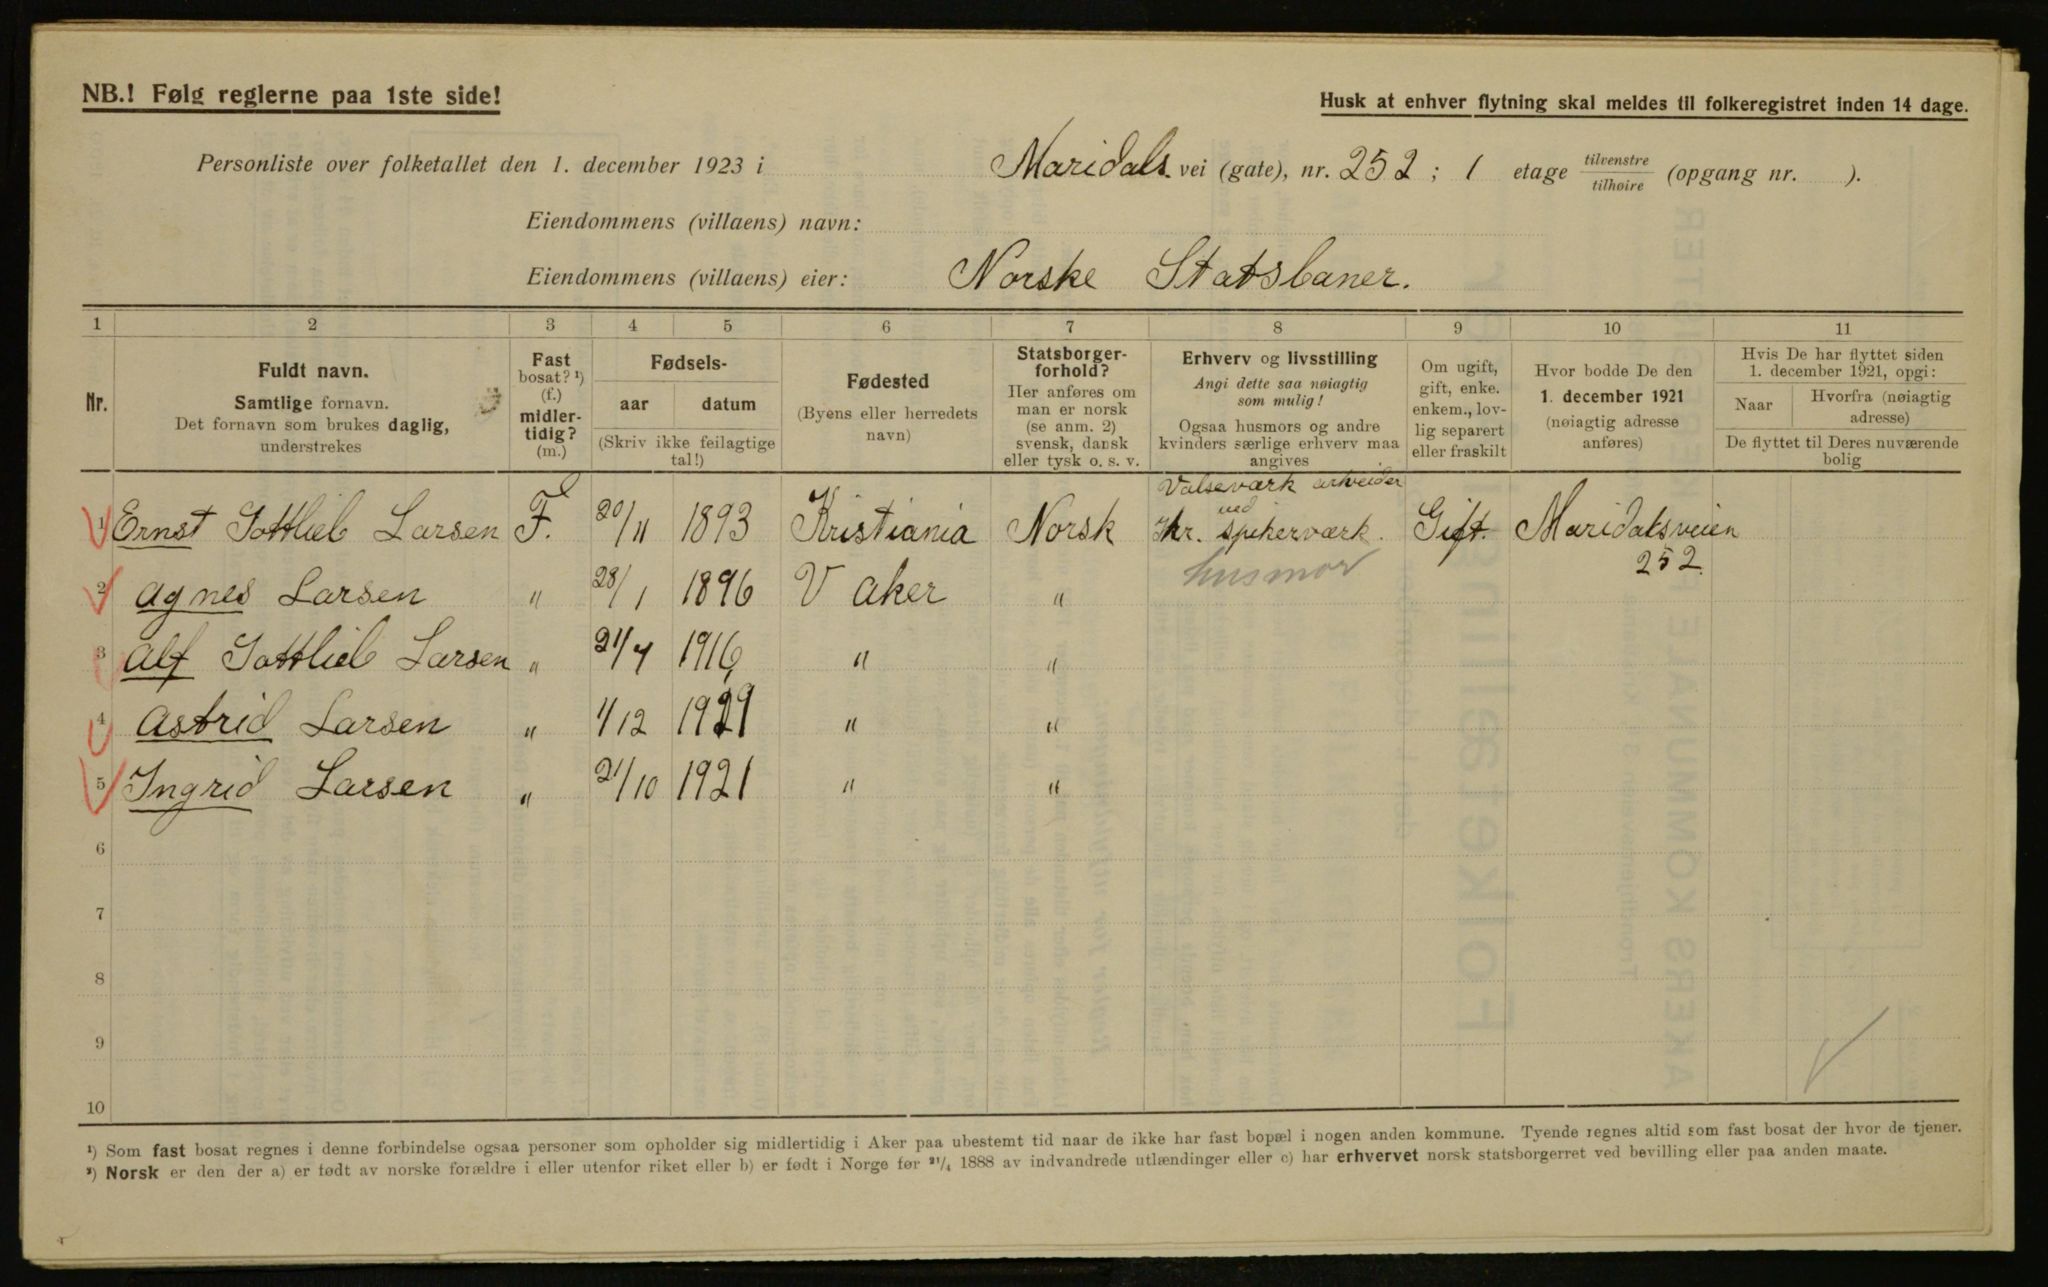 NB.! Følg reglerne paa 1ste side!
Husk at enhver flytning skal meldes til folkeregistret inden 14 dage.
Personliste over folketallet den 1. december 1923 i Maridals. vei (gate), nr. 252 ; 1 etage tilvenstre/tilhøire (opgang nr. ).
Eiendommens (villaens) navn:
Eiendommens (villaens) eier: Norske Statsbaner.
1 2 3 4 5 6 7 8 9 10 11
Nr.
Fuldt navn.
Samtlige fornavn.
Det fornavn som brukes daglig,
understrekes
Fast
bosat? ¹)
(f.)
midler-
tidig?
(m.)
Fødsels-
aar datum
(Skriv ikke feilagtige
tal!)
Fødested
(Byens eller herredets
navn)
Statsborger-
forhold?
Her anføres om
man er norsk
(se anm. 2)
svensk, dansk
eller tysk o. s. v.
Erhverv og livsstilling
Angi dette saa nøiagtig
som mulig!
Ogsaa husmors og andre
kvinders særlige erhverv maa
angives
Om ugift,
gift, enke.
enkem., lov-
lig separert
eller fraskilt
Hvor bodde De den
1. december 1921
(nøiagtig adresse
anføres)
Hvis De har flyttet siden
1. december 1921, opgi:
Naar
Hvorfra (nøiagtig
adresse)
De flyttet til Deres nuværende
bolig
Valseværk arbeider
ved
1 Ernst Gottlieb Larsen F. 20/11 1893 Kristiania Norsk Kr. spikerværk. Gift. Maridalsveien
252.
2 Agnes Larsen " 28/1 1896 V Aker " husmor
3 Alf Gottlieb Larsen " 21/7 1916 " "
4 Astrid Larsen " 1/12 1919 " "
5 Ingrid Larsen " 21/10 1921 " "
6
7
8
9
10
¹) Som fast bosat regnes i denne forbindelse ogsaa personer som opholder sig midlertidig i Aker paa ubestemt tid naar de ikke har fast bopæl i nogen anden kommune. Tyende regnes altid som fast bosat der hvor de tjener.
²) Norsk er den der a) er født av norske forældre i eller utenfor riket eller b) er født i Norge før ²¹/₄ 1888 av indvandrede utlændinger eller c) har erhvervet norsk statsborgerret ved bevilling eller paa anden maate.